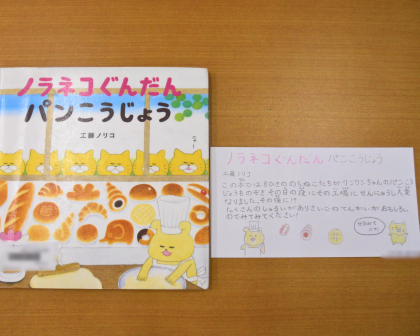 ノラネコぐんだん
パンこうじょう
工藤ノリコ
ノラネコぐんだん パンこうじょう
工藤 ノリコ
この本は8ひきの のらねこたちが ワンワンちゃんの パンこう
じょうをのぞき その日の夜に その工場に せんにゅうし 大変
なりました。その後に!?
たくさんの しゅるいが あり さいごの てんかいが おもしろい
のでみてみてください!